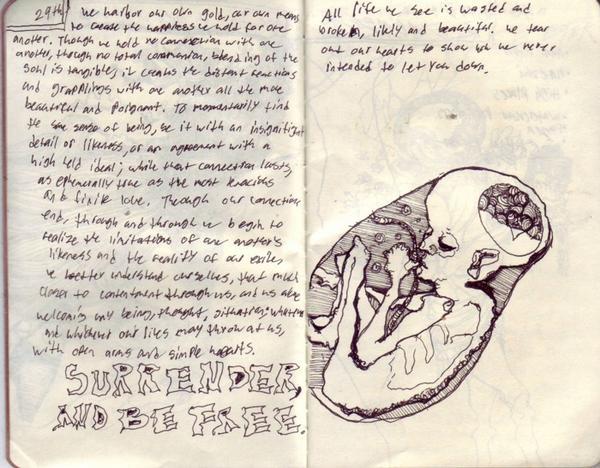 29th we harbor our own gold, our own means
to create the happiness we hold for one
another. Though we hold no connection with one
another, though no total communion, blending of the
soul is tangible, it creates the distant reactions
and grapplings with one another all the more
beautiful and poignant. To momentarily find
the same sense of being, be it with an insignificant
detail or likeness, or an agreement with a
high held ideal; while that connection lasts,
as ephemerally true as the most tenacious
and finite love. Though our connections
end, through and through we begin to
realize the limitations of one another's
likeness and the reality of our exiles,
we better understand ourselves, that much
closer to contentment through us, and us
welcoming any being, thought, situation: whatever
and whichever our lives may throw at us,
with open arms and simple hearts.
SURRENDER,
AND BE FREE.
All life we see is wasted and
broken, likely and beautiful. we tear
out our hearts to show we never
intended to let you down.